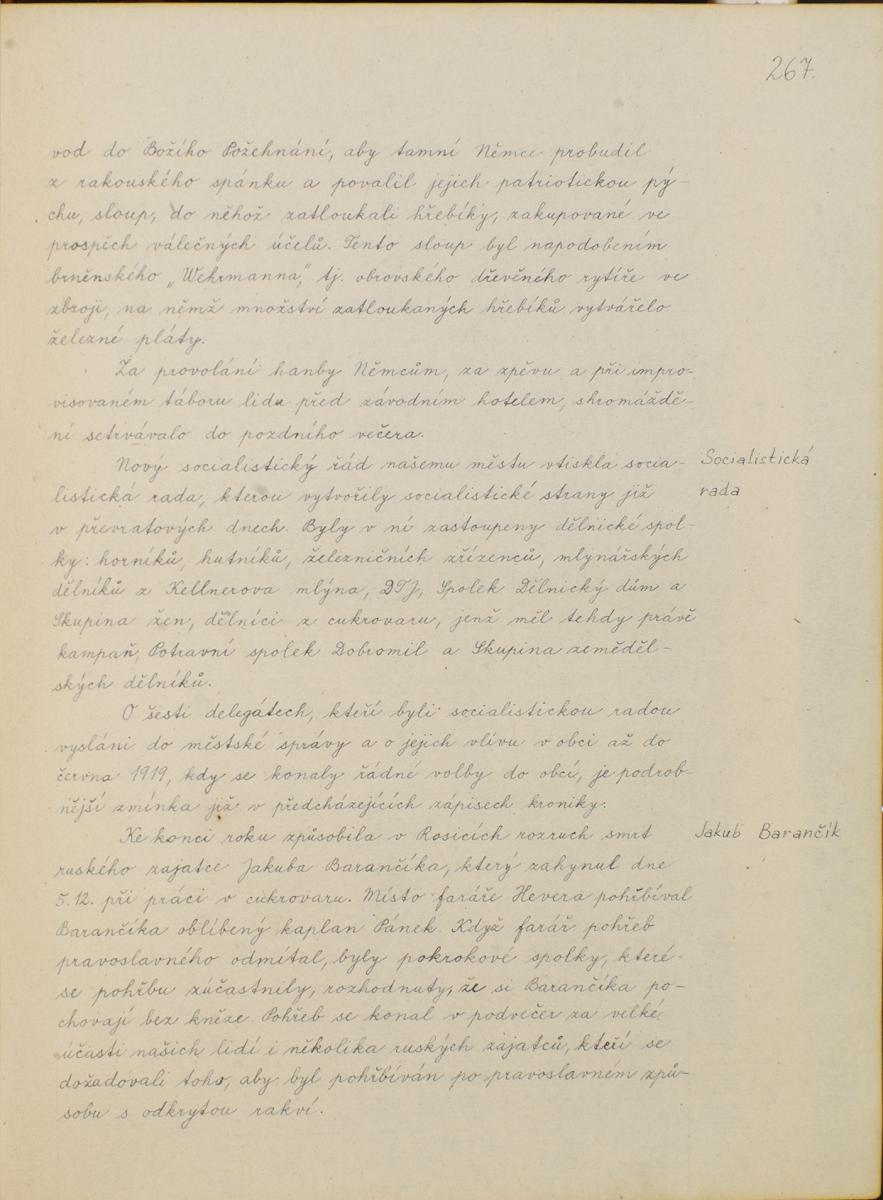 267.
vod do Božího Požehnání, aby tamní Němce probudil
z rakouského spánku a povalil jejich patriotickou pý-
chu, sloup, do něhož zatloukali hřebíky, zakupované ve
prospěch válečných účelů. Tento sloup byl napodobením
brněnského „Wehrmanna," tj. obrovského dřevěného rytíře ve
zbroji, na němž množství zatloukaných hřebíků vytvářelo
železné pláty.
Za provolání hanby Němcům, za zpěvu a při impro-
visovaném táboru lidu před závodním hotelem, shromáždě-
ní setrvávalo do pozdního večera.
Nový socialistický řád našemu městu vtiskla socia-
listická rada, kterou vytvořily socialistické strany již
v převratových dnech. Byly v ní zastoupeny dělnické spol-
ky: horníků, hutníků, železničních zřízenců, mlynářských
dělníků z Kellnerova mlýna, DTJ, Spolek Dělnický dům a
Skupina žen, dělníci z cukrovaru, jenž měl tehdy právě
kampaň, Potravní spolek Dobromil a Skupina zeměděl-
ských dělníků.
Socialistická
rada
O šesti delegátech, kteří byli socialistickou radou
vysláni do městské správy a o jejich vlivu v obci až do
června 1919, kdy se konaly řádné volby do obcí, je podrob-
nější zmínka již v předcházejících zápisech kroniky.
Ke konci roku způsobila v Rosicích rozruch smrt
ruského zajatce Jakuba Barančíka, který zahynul dne
5.12. při práci v cukrovaru. Místo faráře Hevera pohřbíval
Barančíka oblíbený kaplan Pánek. Když farář pohřeb
pravoslavného odmítal, byly pokrokové spolky, které
se pohřbu zúčastnily, rozhodnuty, že si Barančíka po-
chovají bez kněze. Pohřeb se konal v podvečer za velké
účasti našich lidí i několika ruských zajatců, kteří se
dožadovali toho, aby byl pohřbíván po pravoslavném způ-
sobu s odkrytou rakví.
Jakub Barančík